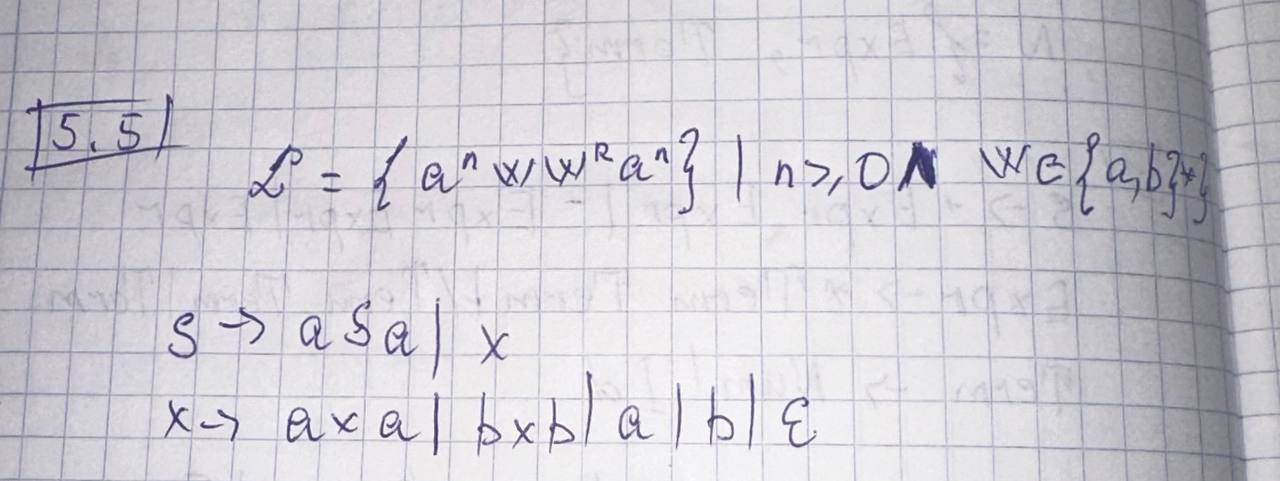 5.5
L = { aⁿ w wᴿ aⁿ } | n ≥ 0 ∧ w ∈ {a, b}*}
S → a S a | x
x → a x a | b x b | a | b | ε